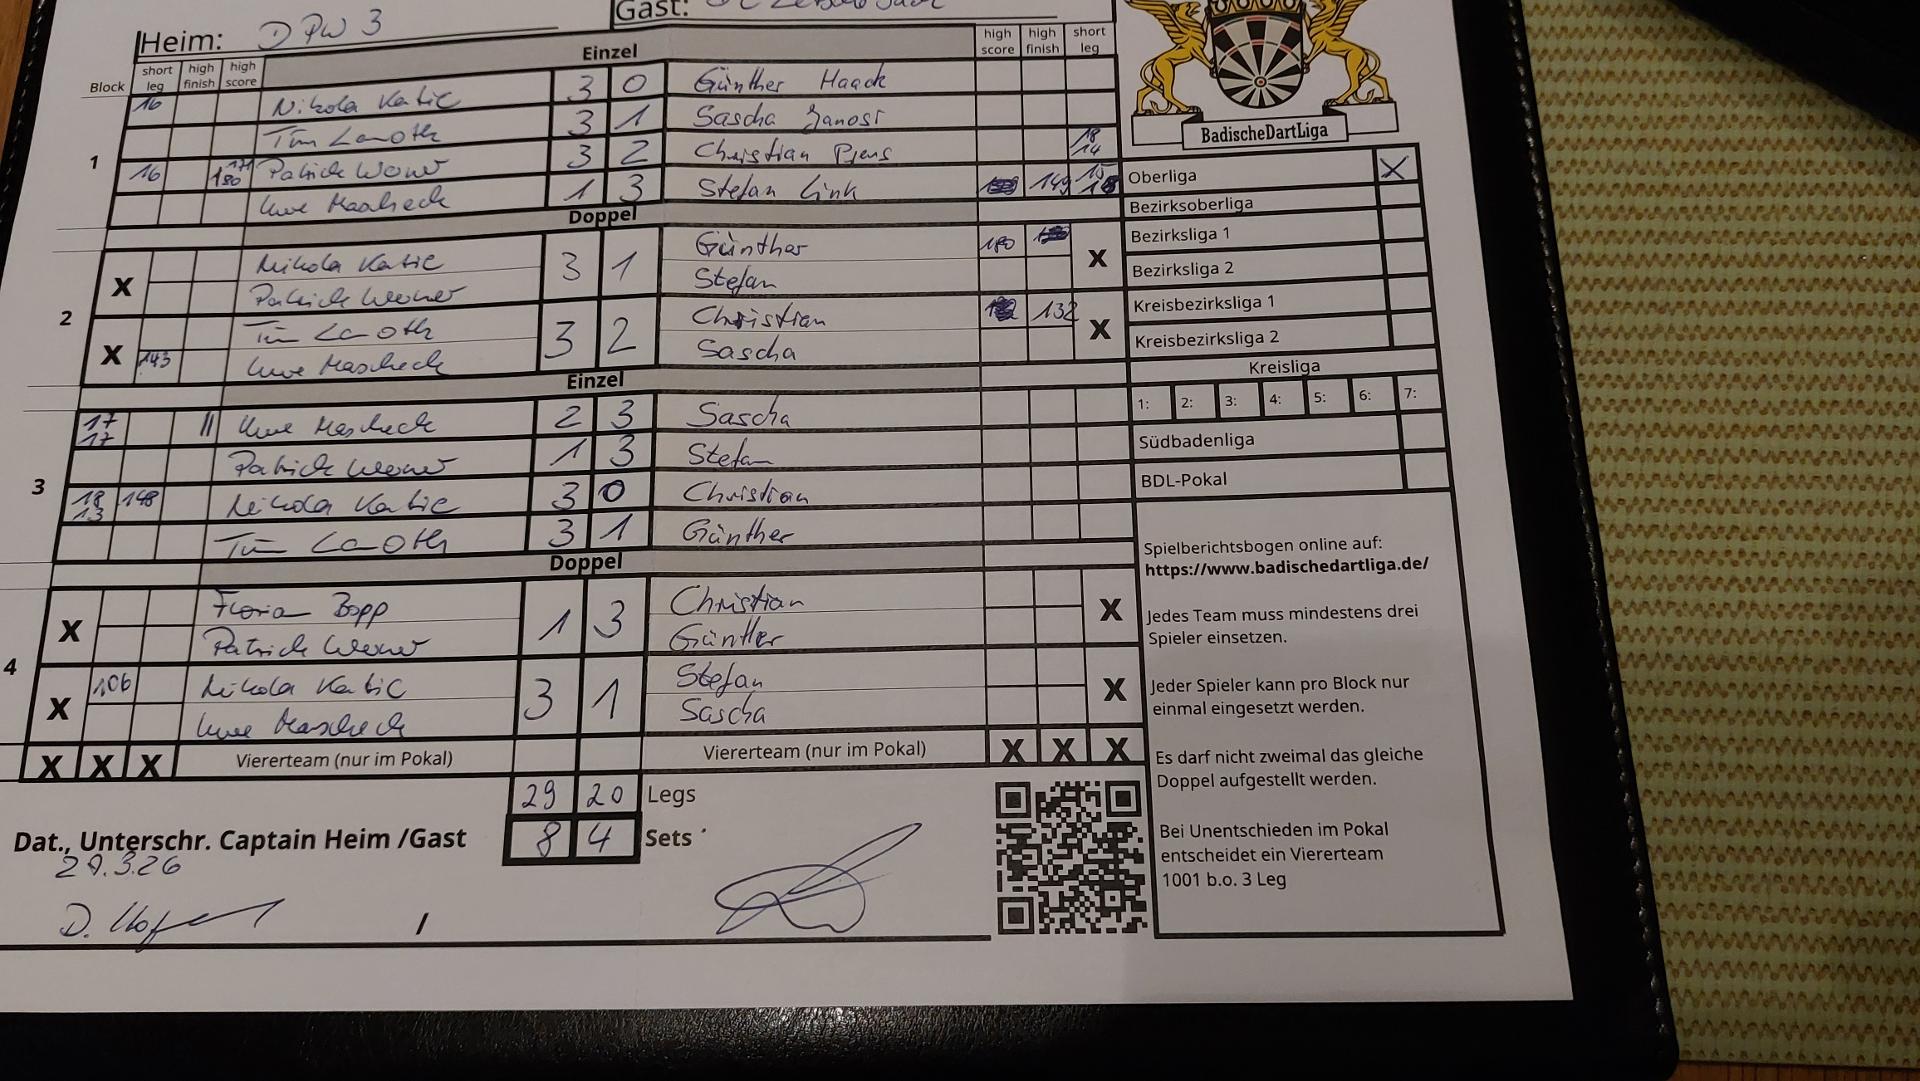 Heim: DPW 3
Gast:
Block short leg high finish high score Einzel high score high finish short leg
1
16 Nikola Katic 3 0 Günther Haack
Tim Lanoth 3 1 Sascha Janosi
16 171 180 Patrick Werner 3 2 Christian 18 14
Uwe Mascheck 1 3 Stefan Link 149 15
Doppel
2
X Nikola Katic 3 1 Günther 180 X
Patrick Werner Stefan
X Tim Lanoth 3 2 Christian 132 X
143 Uwe Mascheck Sascha
Einzel
3
17 17 || Uwe Mascheck 2 3 Sascha
Patrick Werner 1 3 Stefan
18 13 148 Nikola Katic 3 0 Christian
Tim Lanoth 3 1 Günther
Doppel
4
X Florian Bopp 1 3 Christian X
Patrick Werner Günther
X 106 Nikola Katic 3 1 Stefan X
Uwe Mascheck Sascha
X X X Viererteam (nur im Pokal) Viererteam (nur im Pokal) X X X
29 20 Legs
8 4 Sets
Dat., Unterschr. Captain Heim /Gast
29.3.26
/
BadischeDartLiga
Oberliga X
Bezirksoberliga
Bezirksliga 1
Bezirksliga 2
Kreisbezirksliga 1
Kreisbezirksliga 2
Kreisliga
1: 2: 3: 4: 5: 6: 7:
Südbadenliga
BDL-Pokal
Spielberichtsbogen online auf:
https://www.badischedartliga.de/
Jedes Team muss mindestens drei
Spieler einsetzen.
Jeder Spieler kann pro Block nur
einmal eingesetzt werden.
Es darf nicht zweimal das gleiche
Doppel aufgestellt werden.
Bei Unentschieden im Pokal
entscheidet ein Viererteam
1001 b.o. 3 Leg